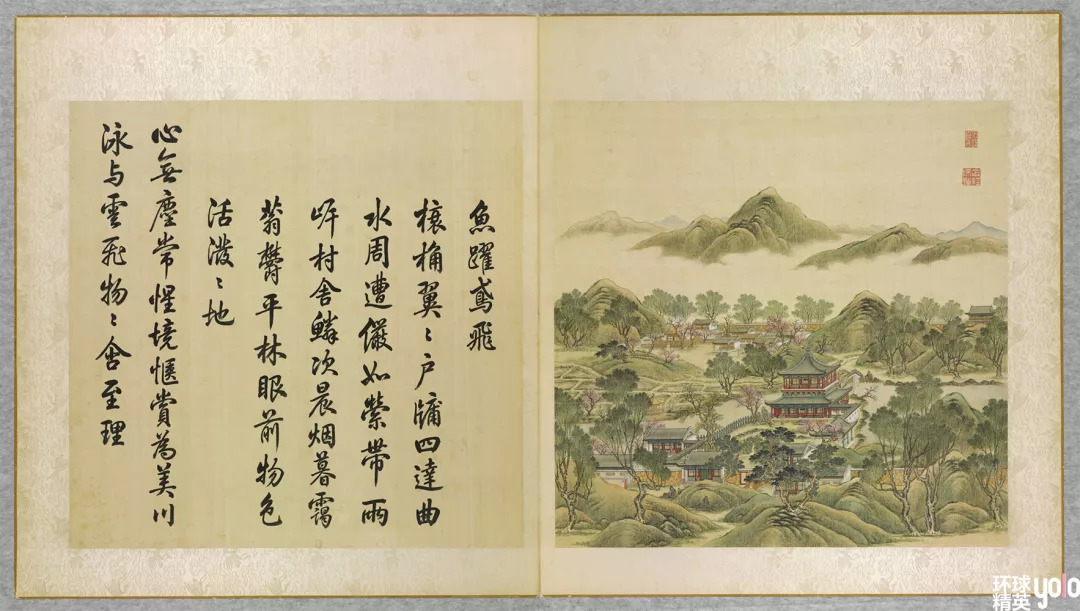 魚躍鳶飛
榱桷翼〻户牖四達曲
水周遭儼如縈帶兩
岸村舍鱗次晨烟暮靄
蓊鬱平林眼前物色
活潑〻地
心無塵常惺境愜賞為美川
泳与雲飛物〻含至理
环球
精英
yolo